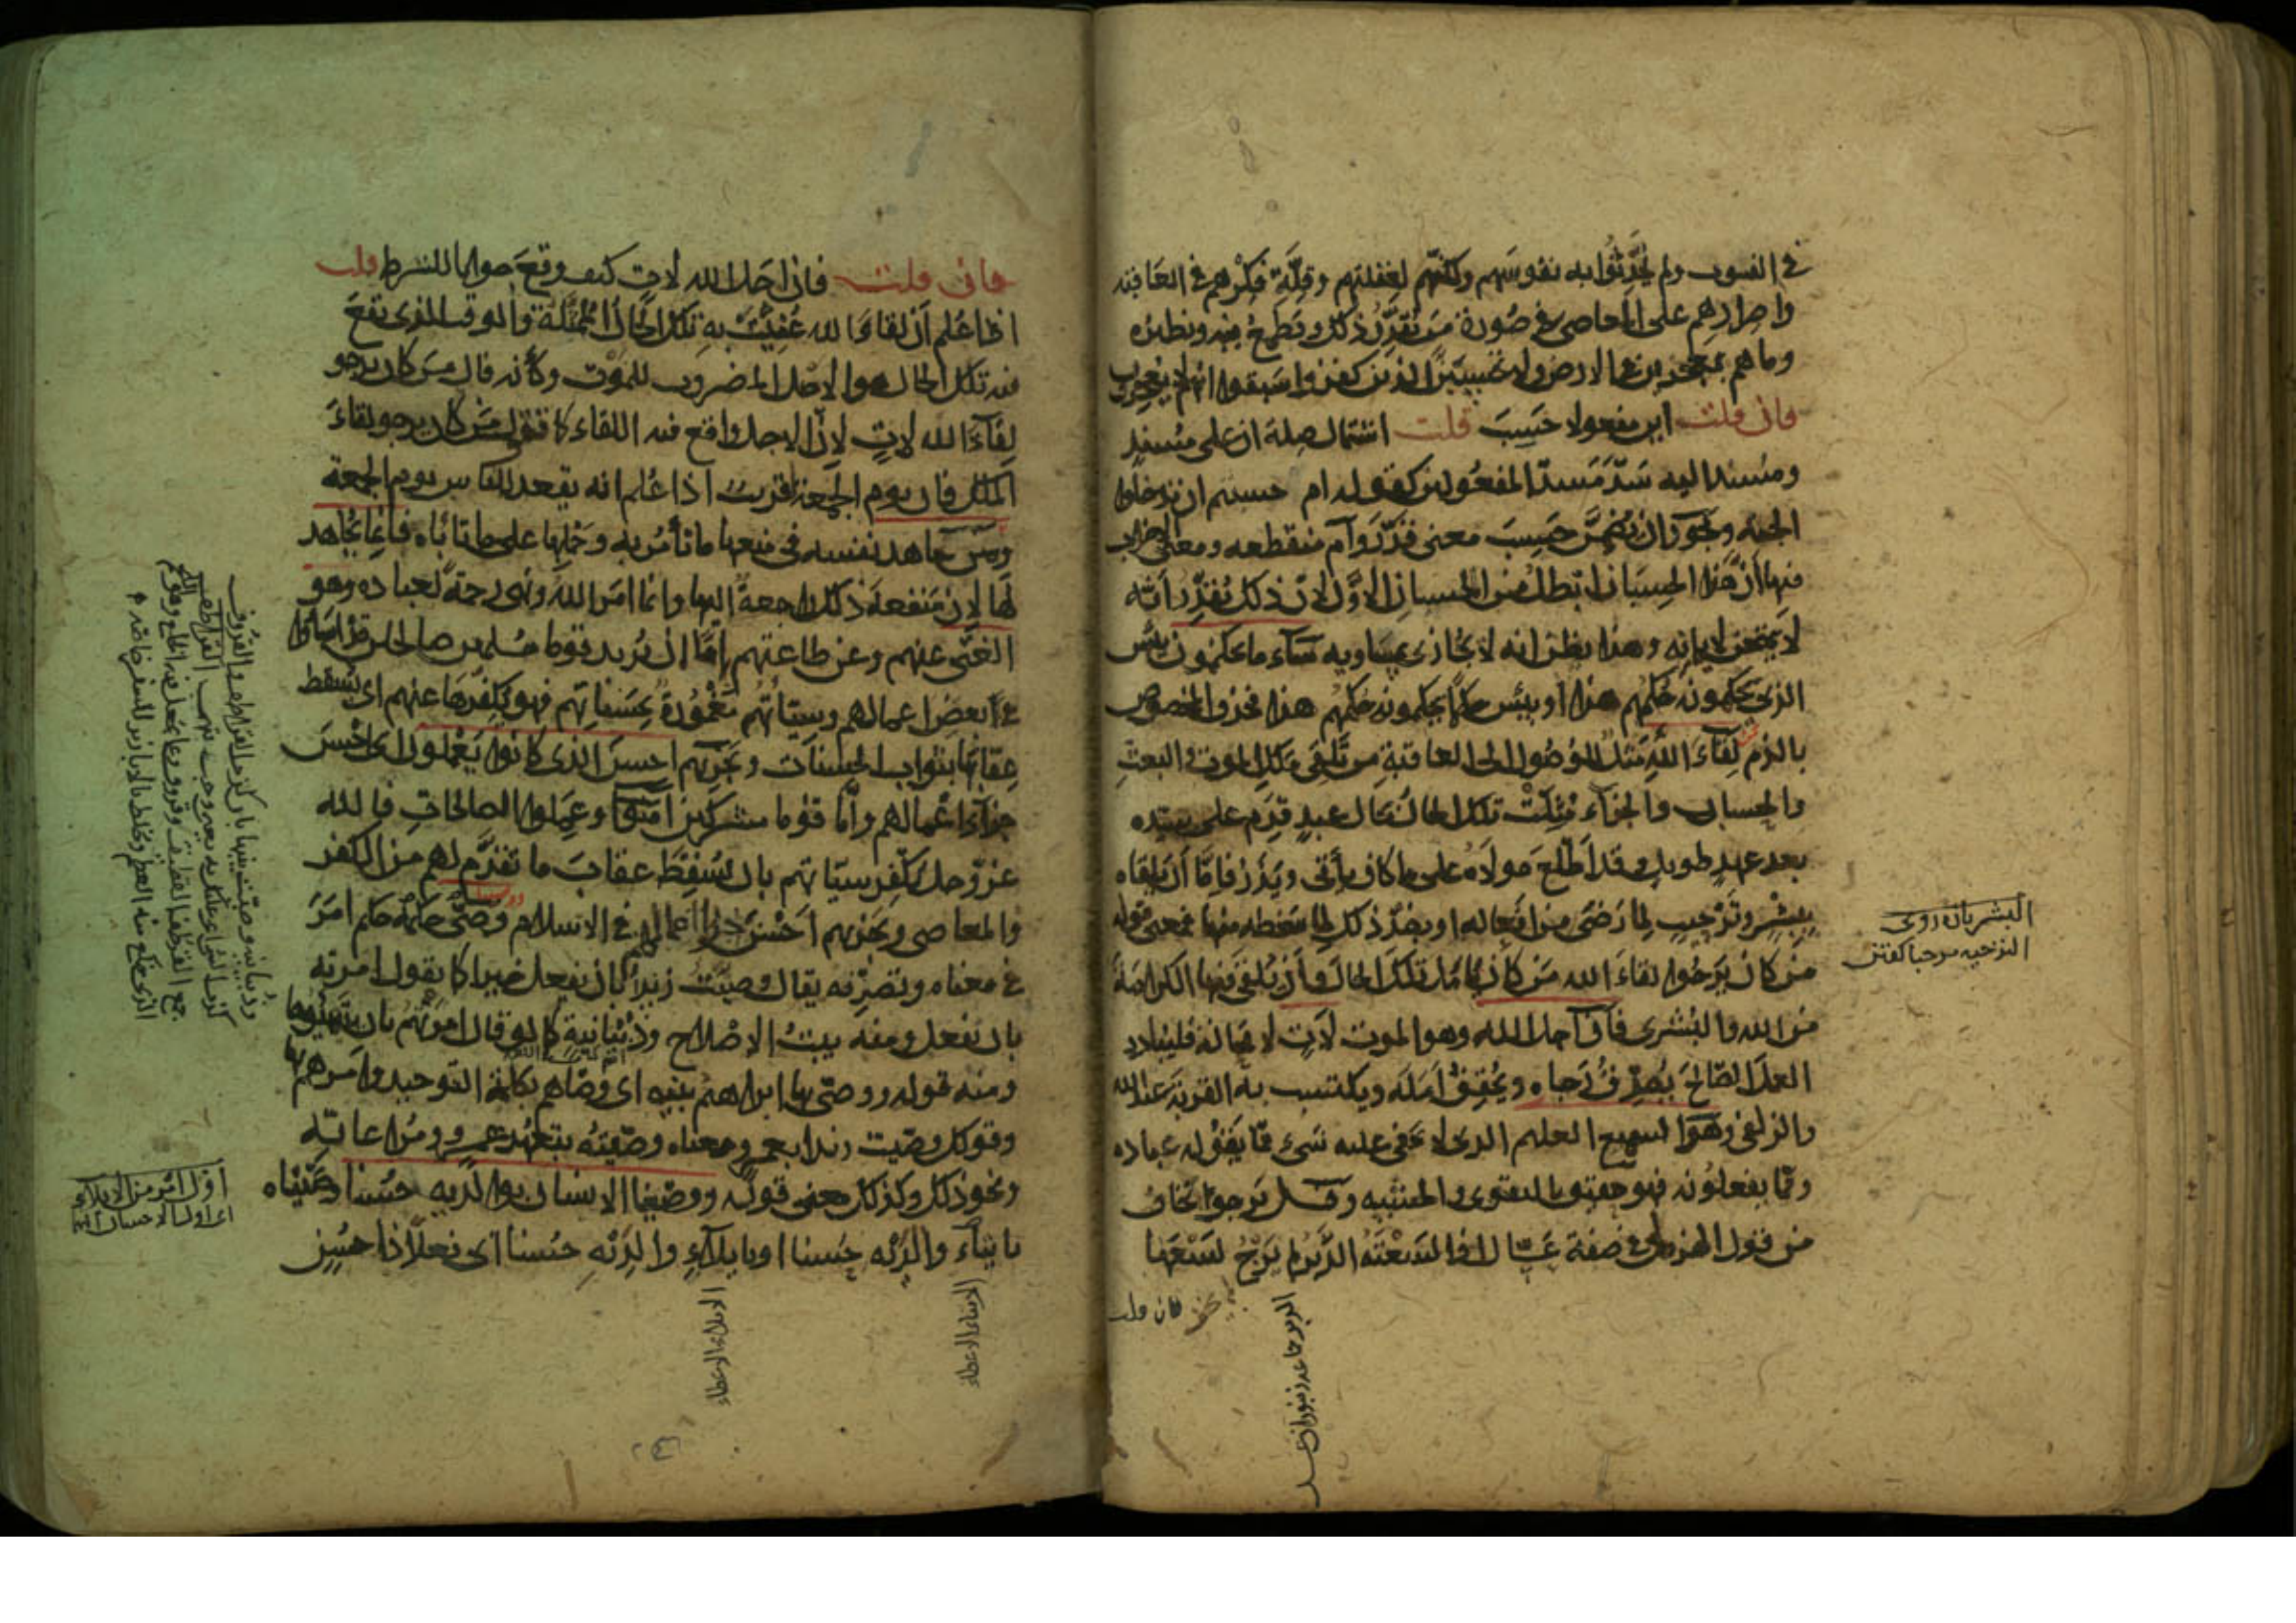 في الفوت ولم يحدّثوا به نفوسهم ولكنهم لغفلتهم وقلّة فكرهم في العاقبة
واصرارهم على المعاصي في صورة من يقدّر ذلك ويطمع فيه ونظيره
وما هم بمعجزين في الارض ولا تحسبنّ الذين كفروا سبقوا انهم لا يعجزون
فان قلت اين مفعولا حسب قلت اشتمال صلة ان على مسند
ومسند اليه سدّ مسدّ المفعولين كقوله ام حسبتم ان تدخلوا
الجنة ويجوز ان يضمّن حسب معنى قدّر وام منقطعة ومعنى الاضراب
فيها ان هذا الحسبان ابطل من الحسبان الاوّل لان ذلك يقدّر انه
لا يمتحن لايمانه وهذا يظن انه لا يجازى بمساويه ساء ما يحكمون بئس
الذي يحكمونه حكمهم هذا او بئس حكما يحكمونه حكمهم هذا فحذف المخصوص
بالذم لقاء الله مثل للوصول الى العاقبة من تلقي ملك الموت والبعث
والحساب والجزاء مثّلت تلك الحال بحال عبد قدم على سيده
بعد عهد طويل وقد اطّلع مولاه على ما كان يأتي ويذر فامّا أن يلقاه
ببشر وترحيب لما رضي من افعاله او بضدّ ذلك لما سخطه منها فمعنى قوله
من كان يرجوا لقاء الله من كان يأمل تلك الحال وأن يلقى فيها الكرامة
من الله والبشرى فان اجل الله وهو الموت لآت لا محالة فليبادر
العمل الصالح يصدّق رجاه ويحقق امله ويكتسب به القربة عند الله
والزلفى وهو السميع العليم الذي لا يخفى عليه شيء مما يقوله عباده
ومما يفعلونه فهو حقيق بالتقوى والخشية وقيل يرجوا يخاف
من قول الهذلي في صفة عسّال اذا لسعته الدّبر لم يرج لسعها
فان قلت
البشر تازه روى
الترحيب مرحبا كفتن
فان قلت فان اجل الله لآت كيف وقع جوابا للشرط قلت
اذا علم أن لقاء الله عنيت به تلك الحال الممثّلة والوقت الذي تقع
فيه تلك الحال هو الاجل المضروب للموت وكأنه قال من كان يرجو
لقاء الله لآت لان الاجل واقع فيه اللقاء كما تقول من كان يرجو لقاء
الملك فان يوم الجمعة قريب اذا علم انه يقعد للناس يوم الجمعة
ومن جاهد نفسه في منعها ما تأمر به وحملها على ما تأباه فانما يجاهد
لها لان منفعة ذلك راجعة اليها وانما امر الله ونهى رحمة لعباده وهو
الغني عنهم وعن طاعتهم امّا ان يريد قوما مسلمين صالحين قد اساؤا
في بعض اعمالهم وسيّاتهم مغمورة بحسناتهم فهو يكفّرها عنهم اي يسقط
عقابها بثواب الحسنات ويجزيهم احسن الذي كانوا يعملون اي احسن
جزاء اعمالهم وامّا قوما مشركين آمنوا وعملوا الصالحات فالله
عزّ وجل يكفّر سيّاتهم بان يسقط عقاب ما تقدّم لهم من الكفر
والمعاصي ويجزيهم احسن جزاء اعمالهم في الاسلام وصّى حكمه حكم امر
في معناه وتصرّفه يقال وصّيت زيدا بان يفعل خيرا كما يقول امرته
بان يفعل ومنه بيت الاصلاح وذبيانية كما لو قال امرتهم بان ينتهبوها
ومنه قوله ووصّى بها ابراهيم بنيه اي وصّاهم بكلمة التوحيد وامرهم بها
وقولك وصّيت زيدا بعمرو معناه وصّيته بتعهّد عمرو ومراعاته
ونحو ذلك وكذلك معنى قوله ووصّينا الانسان بوالديه حسنا وصّيناه
بايتاء والديه حسنا او بايلاء والديه حسنا اي فعلا ذا حسن
الايتاء الاعطاء
الايلاء الاعطاء